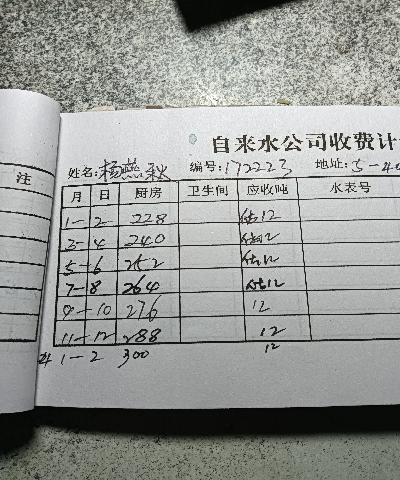 自来水公司收费计
姓名:杨燕秋 编号:172223 地址:5-40
注
月 日 厨房 卫生间 应收吨 水表号
1-2 228 估12
3-4 240 估12
5-6 252 估12
7-8 264 估12
9-10 276 12
11-12 288 12
1-2 300 12